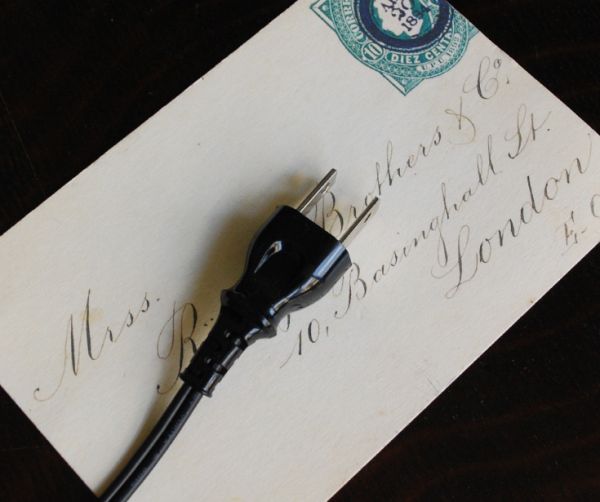 DIEZ CENTAVOS
10
Mrss.
Brothers & Co.
10, Basinghall St.
London
E.C